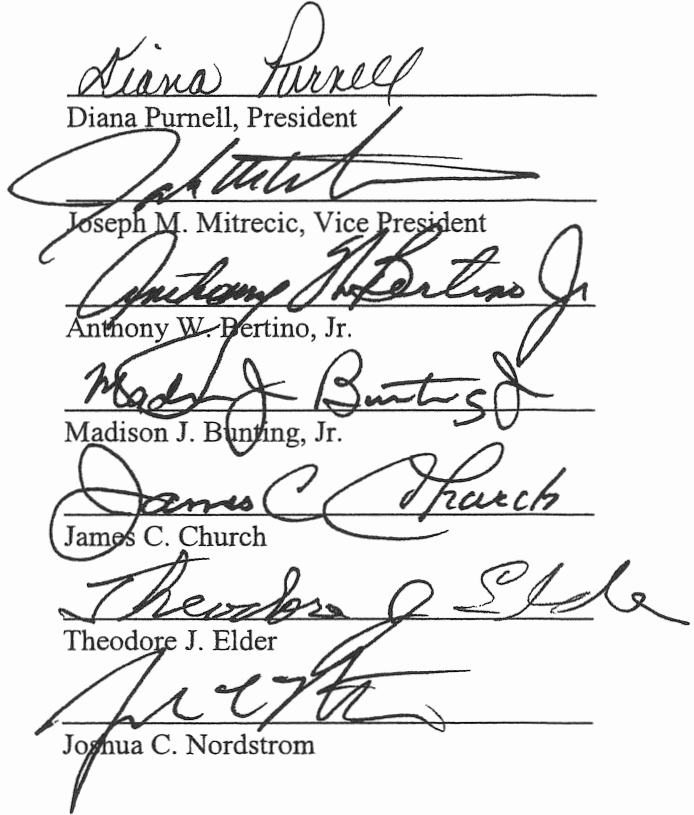 Diana Purnell
Diana Purnell, President
Joseph M. Mitrecic, Vice President
Anthony W. Bertino Jr
Anthony W. Bertino, Jr.
Madison J Bunting Jr
Madison J. Bunting, Jr.
James C Church
James C. Church
Theodore J Elder
Theodore J. Elder
Joshua C. Nordstrom